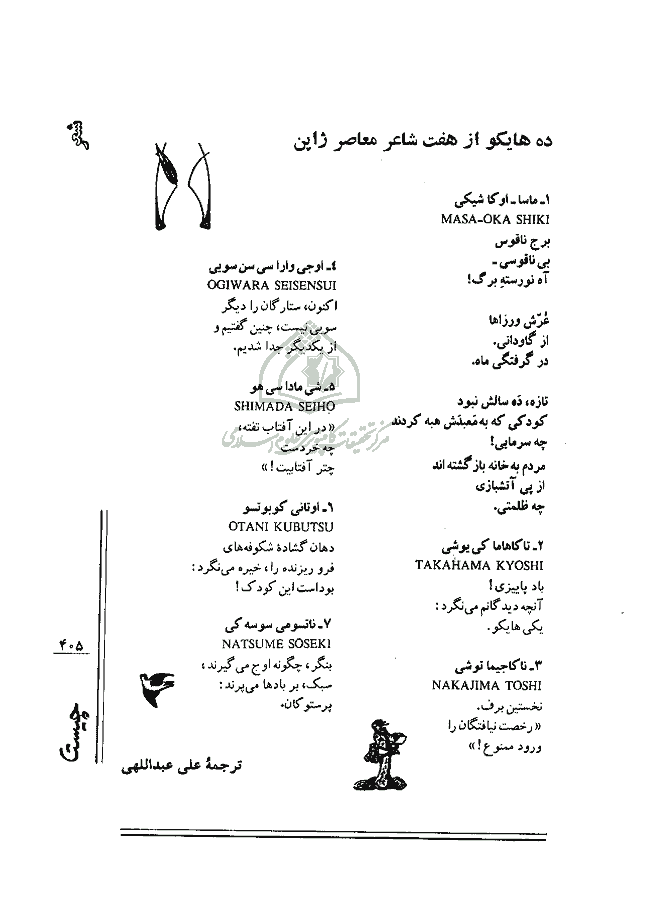 شعر
ده هایکو از هفت شاعر معاصر ژاپن
۱ـ ماسا ـ اوکا شیکی
MASA-OKA SHIKI
برج ناقوس
بی ناقوسی ـ
آه نورسته برگ!
غُرّش ورزاها
از گاودانی.
در گرفتگی ماه.
تازه، ده سالش نبود
کودکی که به معبدش هبه کردند
چه سرمایی!
مردم به خانه بازگشته اند
از پی آتشبازی
چه ظلمتی.
۲ـ تاکاهاما کی یوشی
TAKAHAMA KYOSHI
باد پاییزی!
آنچه دیدگانم می‌نگرد:
یکی هایکو.
۳ـ ناکاجیما توشی
NAKAJIMA TOSHI
نخستین برف.
«رخصت نیافتگان را
ورود ممنوع!»
۴ـ اوجی وارا سی سن سویی
OGIWARA SEISENSUI
اکنون، ستارگان را دیگر
سویی نیست، چنین گفتیم و
از یکدیگر جدا شدیم.
۵ـ شی مادا سی هو
SHIMADA SEIHO
«در این آفتاب تفته،
چه خردست
چتر آفتابیت!»
۶ـ اوتانی کوبوتسو
OTANI KUBUTSU
دهان گشادهٔ شکوفه‌های
فرو ریزنده را، خیره می‌نگرد:
بوداست این کودک!
۷ـ ناتسومی سوسه کی
NATSUME SOSEKI
بنگر، چگونه اوج می‌گیرند،
سبک، بر بادها می‌پرند:
پرستوکان.
ترجمهٔ علی عبداللهی
۴۰۵
چیستا
مرکز تحقیقات کامپیوتری علوم اسلامی